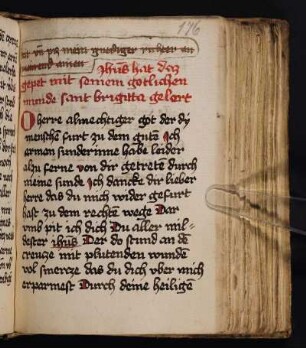 176
vn̄ piſ mein gnediger richter an
amen Jhūs hat dez
gepet mit ſeinem gotlichen
munde ſant brigitta gelert
O herre almechtiger got der dy
menſchen furt zu dem gutē Jch
armen ſunderinne habe laider
alzu ferne von dir getretē durch
meine ſunde Jch dancke dir lieber
herre das du mich wider gefurt
haſt zu dem rechtē wege Dar
vmb pit ich dich Du aller mil-
deſter jhūs Der do ſtund an dē
creucze mit plutenden wunden
vol ſmercze das du dich vber mich
erparmeſt Durch deine heiligē